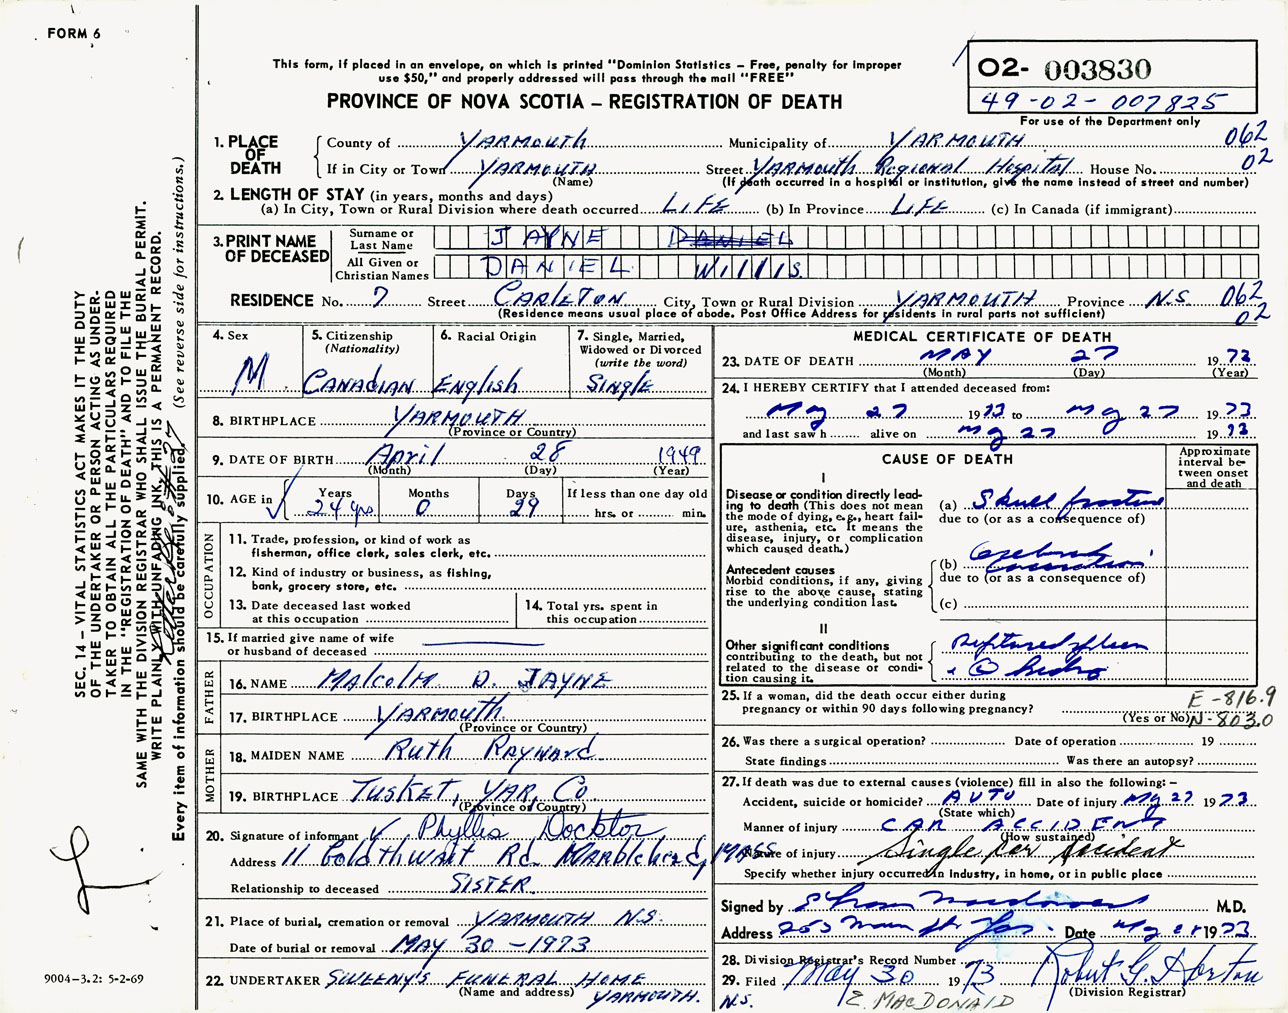 FORM 6
This form, if placed in an envelope, on which is printed "Dominion Statistics – Free, penalty for improper
use $50," and properly addressed will pass through the mail "FREE"
PROVINCE OF NOVA SCOTIA – REGISTRATION OF DEATH
02- 003830
49-02-007825
For use of the Department only
SEC. 14 – VITAL STATISTICS ACT MAKES IT THE DUTY
OF THE UNDERTAKER OR PERSON ACTING AS UNDER-
TAKER TO OBTAIN ALL THE PARTICULARS REQUIRED
IN THE "REGISTRATION OF DEATH" AND TO FILE THE
SAME WITH THE DIVISION REGISTRAR WHO SHALL ISSUE THE BURIAL PERMIT.
WRITE PLAINLY WITH UNFADING INK, THIS IS A PERMANENT RECORD.
Every item of information should be carefully supplied. (See reverse side for instructions.)
1. PLACE OF DEATH
County of YARMOUTH Municipality of YARMOUTH 062
If in City or Town YARMOUTH Street Yarmouth Regional Hospital House No. 02
(Name) (If death occurred in a hospital or institution, give the name instead of street and number)
2. LENGTH OF STAY (in years, months and days)
(a) In City, Town or Rural Division where death occurred LIFE (b) In Province LIFE (c) In Canada (if immigrant)
3. PRINT NAME OF DECEASED
Surname or Last Name JAYNE DANIEL
All Given or Christian Names DANIEL WILLIS
RESIDENCE No. 7 Street CARLETON City, Town or Rural Division YARMOUTH Province N.S. 062
(Residence means usual place of abode. Post Office Address for residents in rural parts not sufficient) 02
4. Sex M
5. Citizenship (Nationality) CANADIAN
6. Racial Origin English
7. Single, Married, Widowed or Divorced (write the word) SINGLE
8. BIRTHPLACE YARMOUTH
(Province or Country)
9. DATE OF BIRTH April 28 1949
(Month) (Day) (Year)
10. AGE in Years Months Days If less than one day old
24 yrs 0 29 hrs. or min.
OCCUPATION
11. Trade, profession, or kind of work as
fisherman, office clerk, sales clerk, etc.
12. Kind of industry or business, as fishing,
bank, grocery store, etc.
13. Date deceased last worked
at this occupation
14. Total yrs. spent in
this occupation
15. If married give name of wife
or husband of deceased
FATHER
16. NAME Malcolm D. JAYNE
17. BIRTHPLACE YARMOUTH.
(Province or Country)
MOTHER
18. MAIDEN NAME Ruth Rayward
19. BIRTHPLACE TUSKET, YAR, Co
(Province or Country)
20. Signature of informant Phyllis Docktor
Address 11 Goldthwait Rd. Marblehead, MASS
Relationship to deceased SISTER.
21. Place of burial, cremation or removal YARMOUTH N.S.
Date of burial or removal MAY 30 - 1973
22. UNDERTAKER SWEENY'S FUNERAL HOME
(Name and address) YARMOUTH. N.S.
MEDICAL CERTIFICATE OF DEATH
23. DATE OF DEATH MAY 27 1973
(Month) (Day) (Year)
24. I HEREBY CERTIFY that I attended deceased from:
May 27 1973 to May 27 1973
and last saw h alive on May 27 1973
CAUSE OF DEATH
Approximate interval between onset and death
I
Disease or condition directly lead-
ing to death (This does not mean
the mode of dying, e.g., heart fail-
ure, asthenia, etc. It means the
disease, injury, or complication
which caused death.)
(a) Skull fracture
due to (or as a consequence of)
Antecedent causes
Morbid conditions, if any, giving
rise to the above cause, stating
the underlying condition last.
(b) Cerebral
due to (or as a consequence of)
(c)
II
Other significant conditions
contributing to the death, but not
related to the disease or condi-
tion causing it.
Ruptured spleen
25. If a woman, did the death occur either during
pregnancy or within 90 days following pregnancy?
(Yes or No)
E-816.9
N-803.0
26. Was there a surgical operation? Date of operation 19
State findings Was there an autopsy?
27. If death was due to external causes (violence) fill in also the following: –
Accident, suicide or homicide? AUTO Date of injury May 27 1973
(State which)
Manner of injury CAR ACCIDENT
(How sustained)
Nature of injury Single Car Accident
Specify whether injury occurred in industry, in home, or in public place
Signed by M.D.
Address 205 Main St Yar Date May 28 1973
28. Division Registrar's Record Number
29. Filed May 30 1973 Robert G. Horton
(Division Registrar)
E. MACDONALD
9004–3.2: 5-2-69